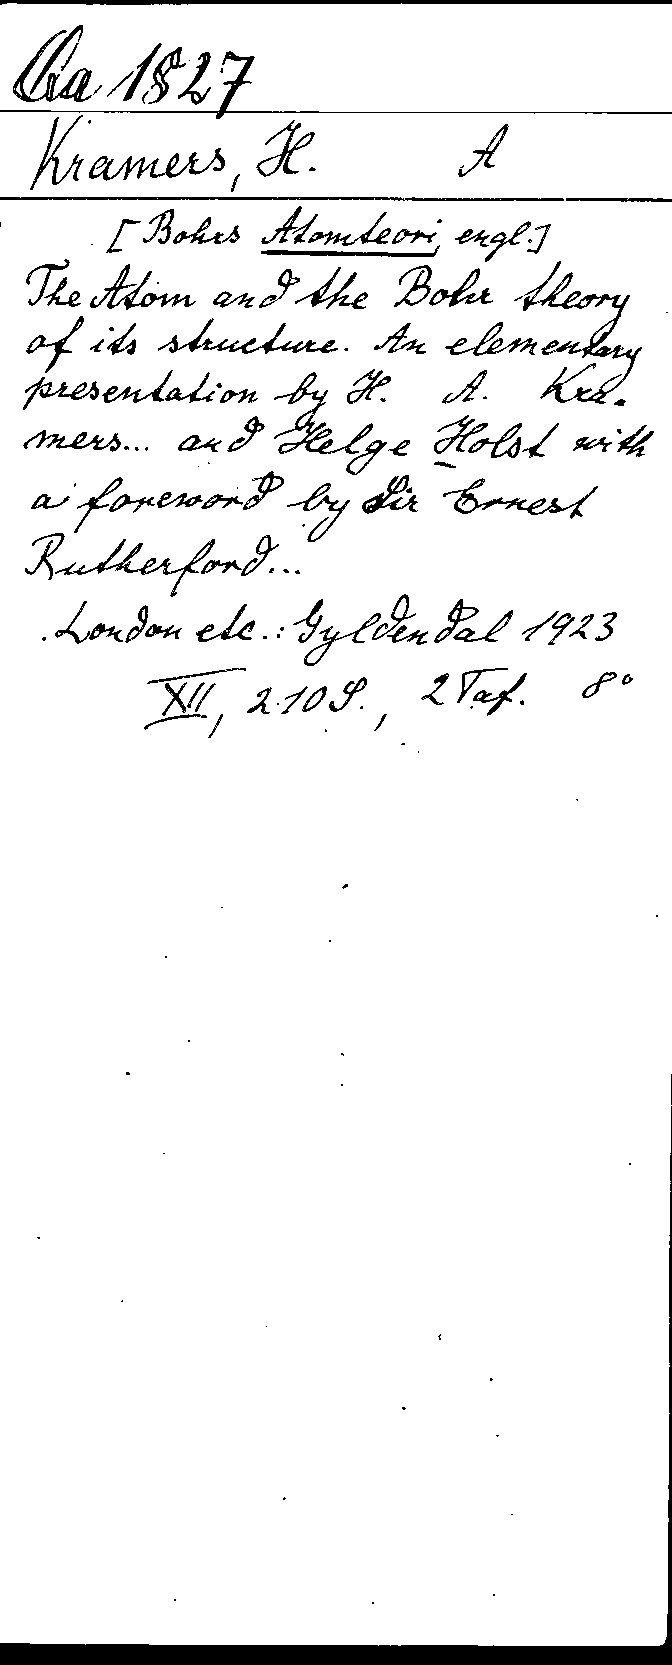 Qa 1827
Kramers, H. A
[Bohrs Atomteori, engl.]
The Atom and the Bohr theory
of its structure. An elementary
presentation by H. A. Kra-
mers... and Helge Holst with
a foreword by Sir Ernest
Rutherford...
London etc.: Gyldendal 1923
XII, 210 S., 2 Taf. 8°